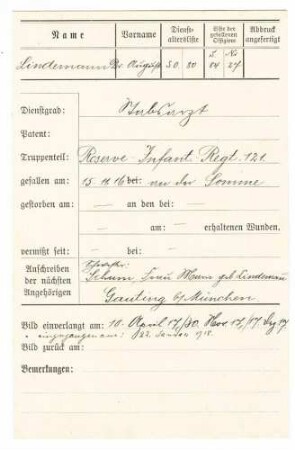 Name Vorname Dienst-altersliste Liste der gefallenen Offiziere Abdruck angefertigt
S. Nr.
Lindemann Dr. August 50. 80 84 27
Dienstgrad: Stabsarzt
Patent:
Truppenteil: Reserve Infant. Regt. 121.
gefallen am: 15.11.16 bei: an der Somme
gestorben am: — an den bei: —
— am: — erhaltenen Wunden.
vermißt seit: — bei: —
Anschreiben
der nächsten Schum, Frau Marie geb. Lindemann
Angehörigen Gauting b/München.
Bild einverlangt am: 10. April 17./30. Nov. 17./17. Dez 17
" eingegangen am: 22. Januar 1918.
Bild zurück am:
Bemerkungen: